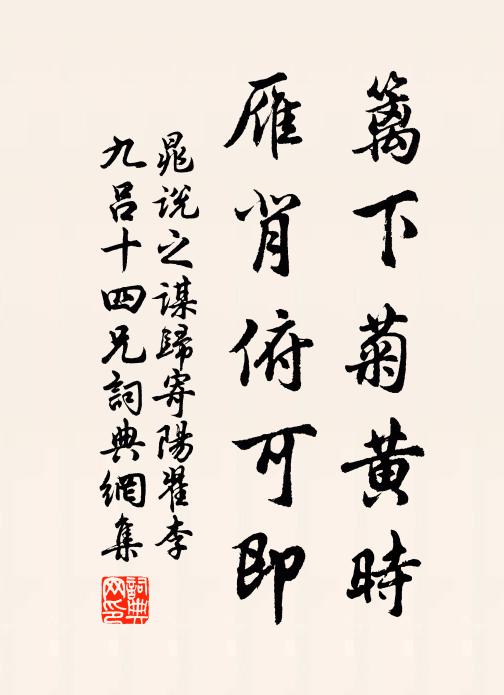 篱下菊黄時
雁背俯可即
晁説之謀歸寄陽翟李
九吕十四兄詞典網集
詞典网印